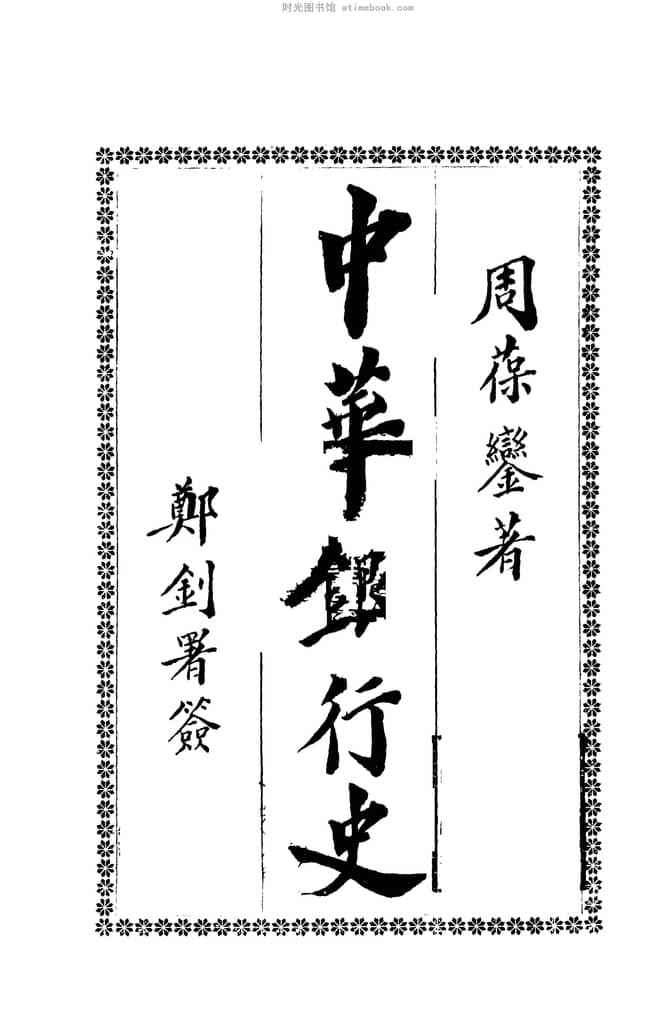 时光图书馆 atimebook.com
周葆鑾著
中華銀行史
鄭釗署簽